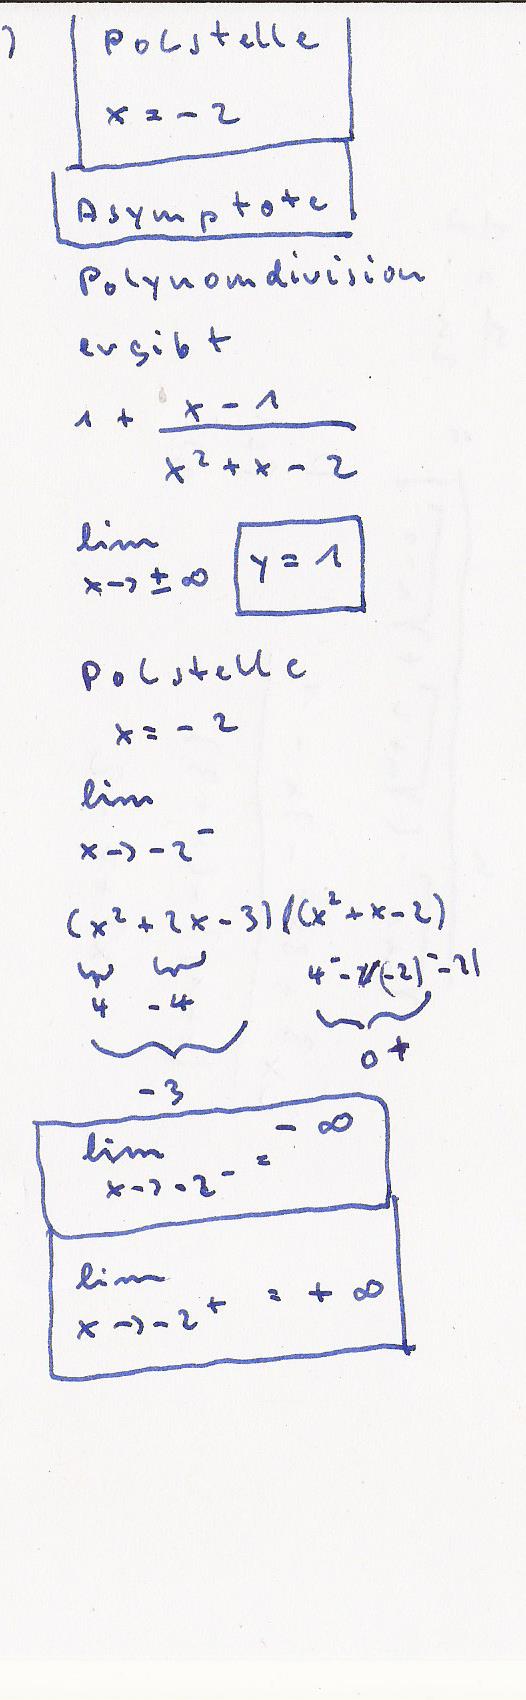 )
Polstelle
x = - 2
Asymptote
Polynomdivision
ergibt
1 + (x - 1) / (x² + x - 2)
lim x -> ± ∞ y = 1
Polstelle
x = - 2
lim
x -> - 2⁻
(x² + 2x - 3) / (x² + x - 2)
4 - 4
0 +
- 3
lim x -> - 2⁻ = - ∞
lim x -> - 2⁺ = + ∞